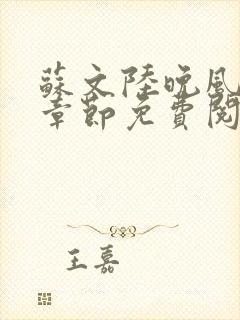 蘇文陸晚風
章節免費閱
王嘉